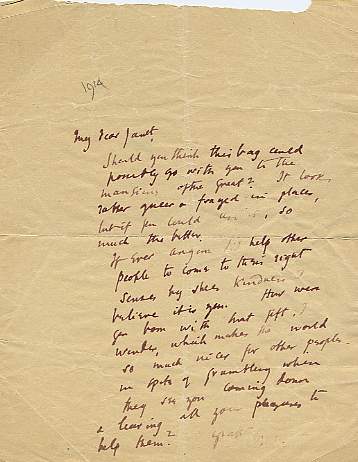 1914
My dear Janet,
Should you think this bag could
possibly go with you to the
mansions of the Great? It looks
rather queer & frayed in places,
but if you could use it, so
much the better.
If ever anyone help other
people to come to their right
senses by sheer kindness, I
believe it is you. How were
you born with that gift, I
wonder, which makes the world
so much nicer for other people
in spite of grumbling when
they see you coming down
& leaving all your pleasures to
help them?